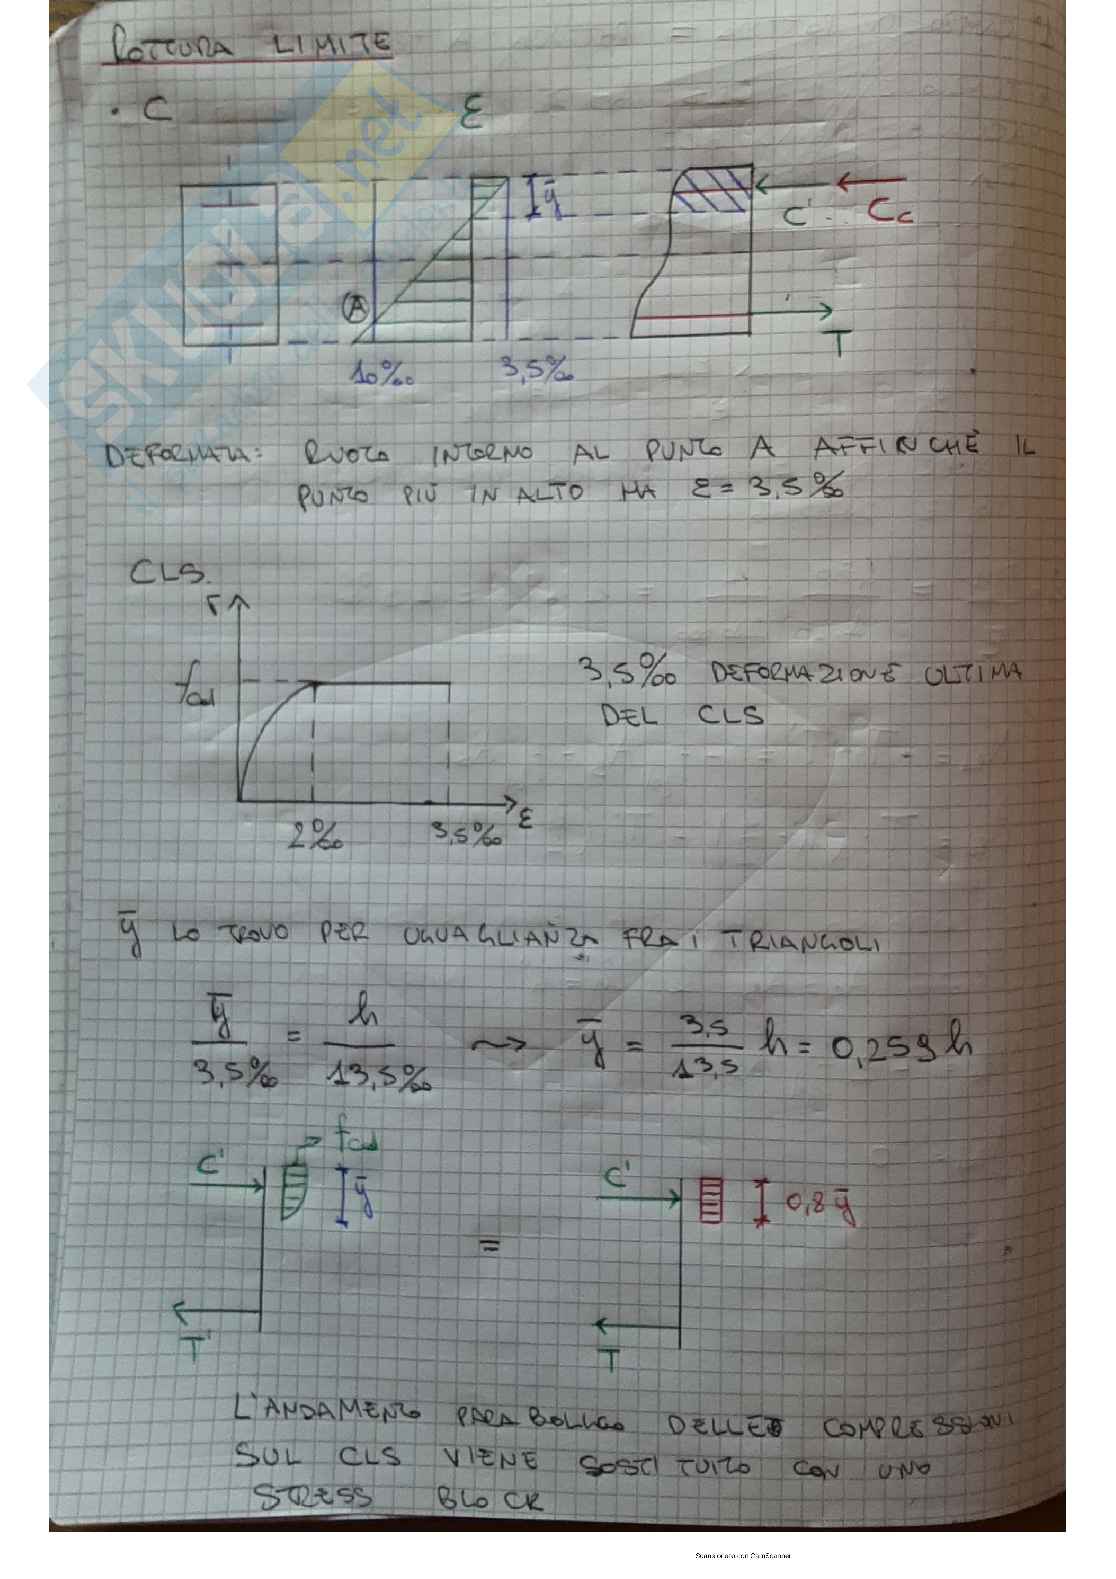 ROTTURA LIMITE
• C
ε
ȳ
C'
Cc
A
T
10‰
3,5‰
DEFORMATA: RUOTO INTORNO AL PUNTO A AFFINCHÈ IL
PUNTO PIÙ IN ALTO HA ε = 3,5‰
CLS.
σ
fcd
3,5‰ DEFORMAZIONE ULTIMA
DEL CLS
ε
2‰
3,5‰
ȳ LO TROVO PER UGUAGLIANZA FRA I TRIANGOLI
ȳ / 3,5‰ = h / 13,5‰ ⤳ ȳ = 3,5 / 13,5 h = 0,259 h
fcd
C'
ȳ
C'
0,8 ȳ
=
T'
T
L'ANDAMENTO PARABOLICO DELLE COMPRESSIONI
SUL CLS VIENE SOSTITUITO CON UNO
STRESS BLOCK
SKUOLA.net
Scansionato con CamScanner